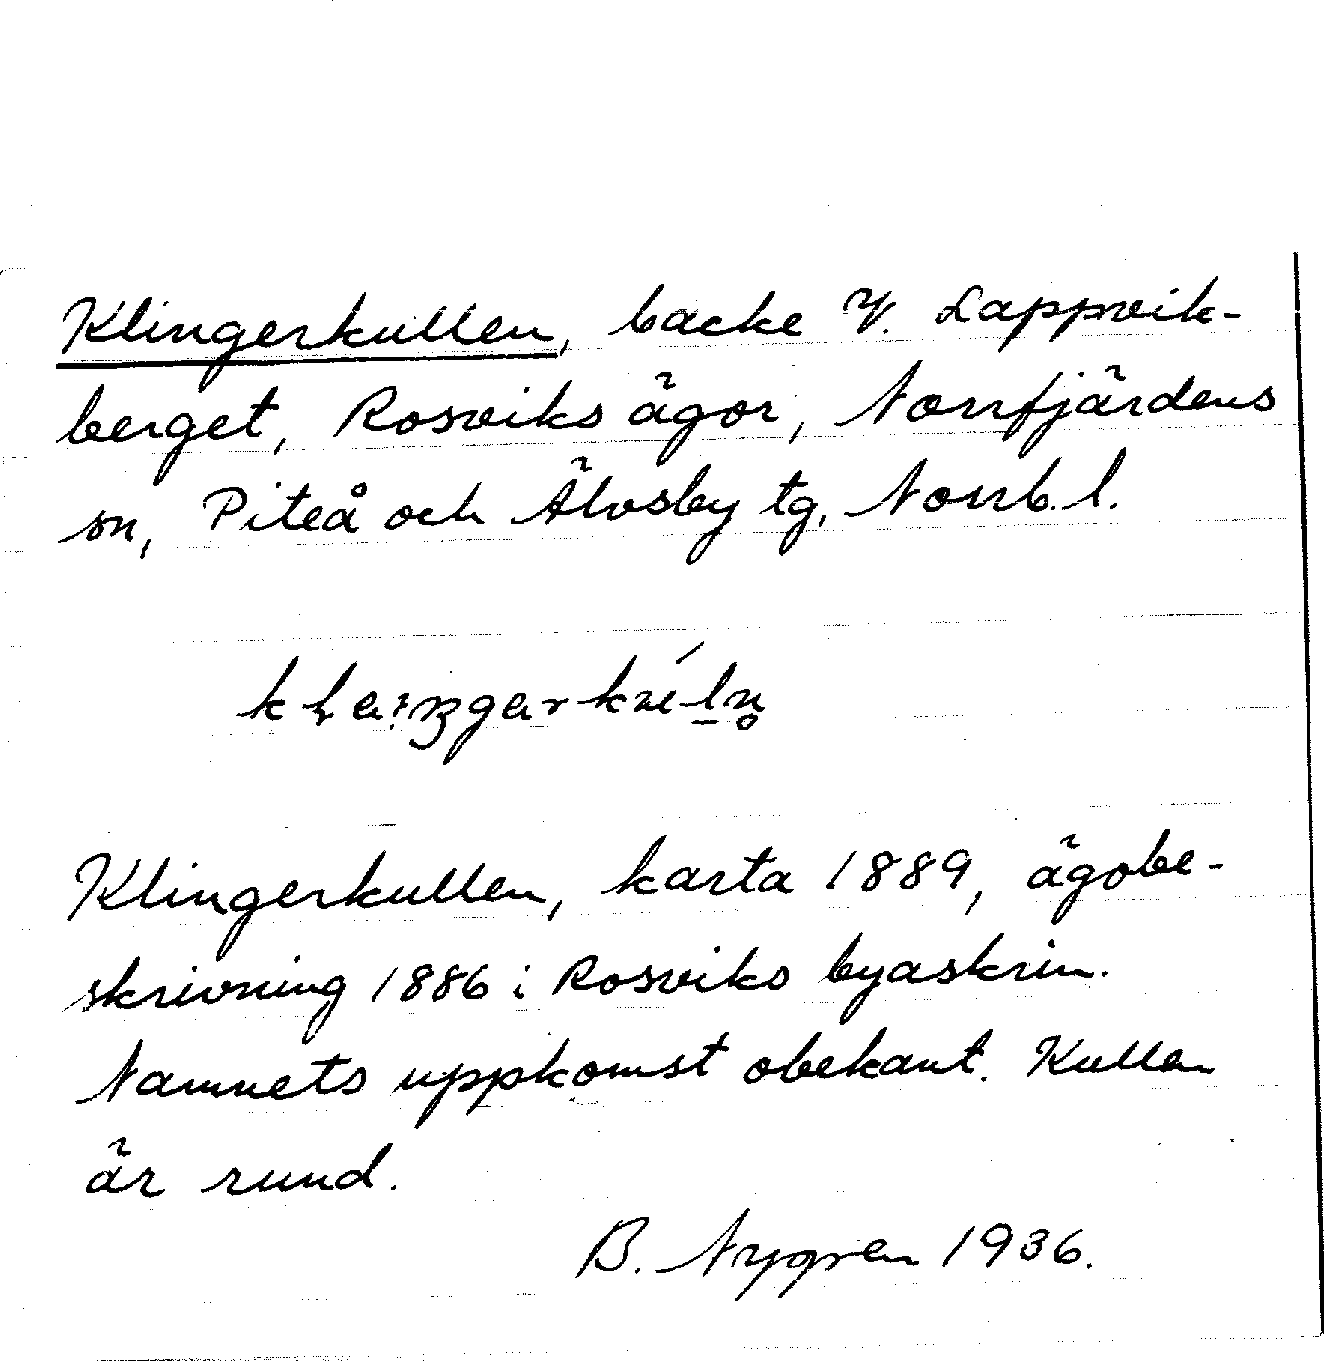 Klingerkullen, backe V. Lappvik-
berget, Rosviks ägor, Norrfjärdens
sn, Piteå och Älvsby tg, Norrb. l.
Klingerkullen, karta 1889, ägobe-
skrivning 1886 i Rosviks byaskrin.
Namnets uppkomst obekant. Kullen
är rund.
B. Nygren 1936.